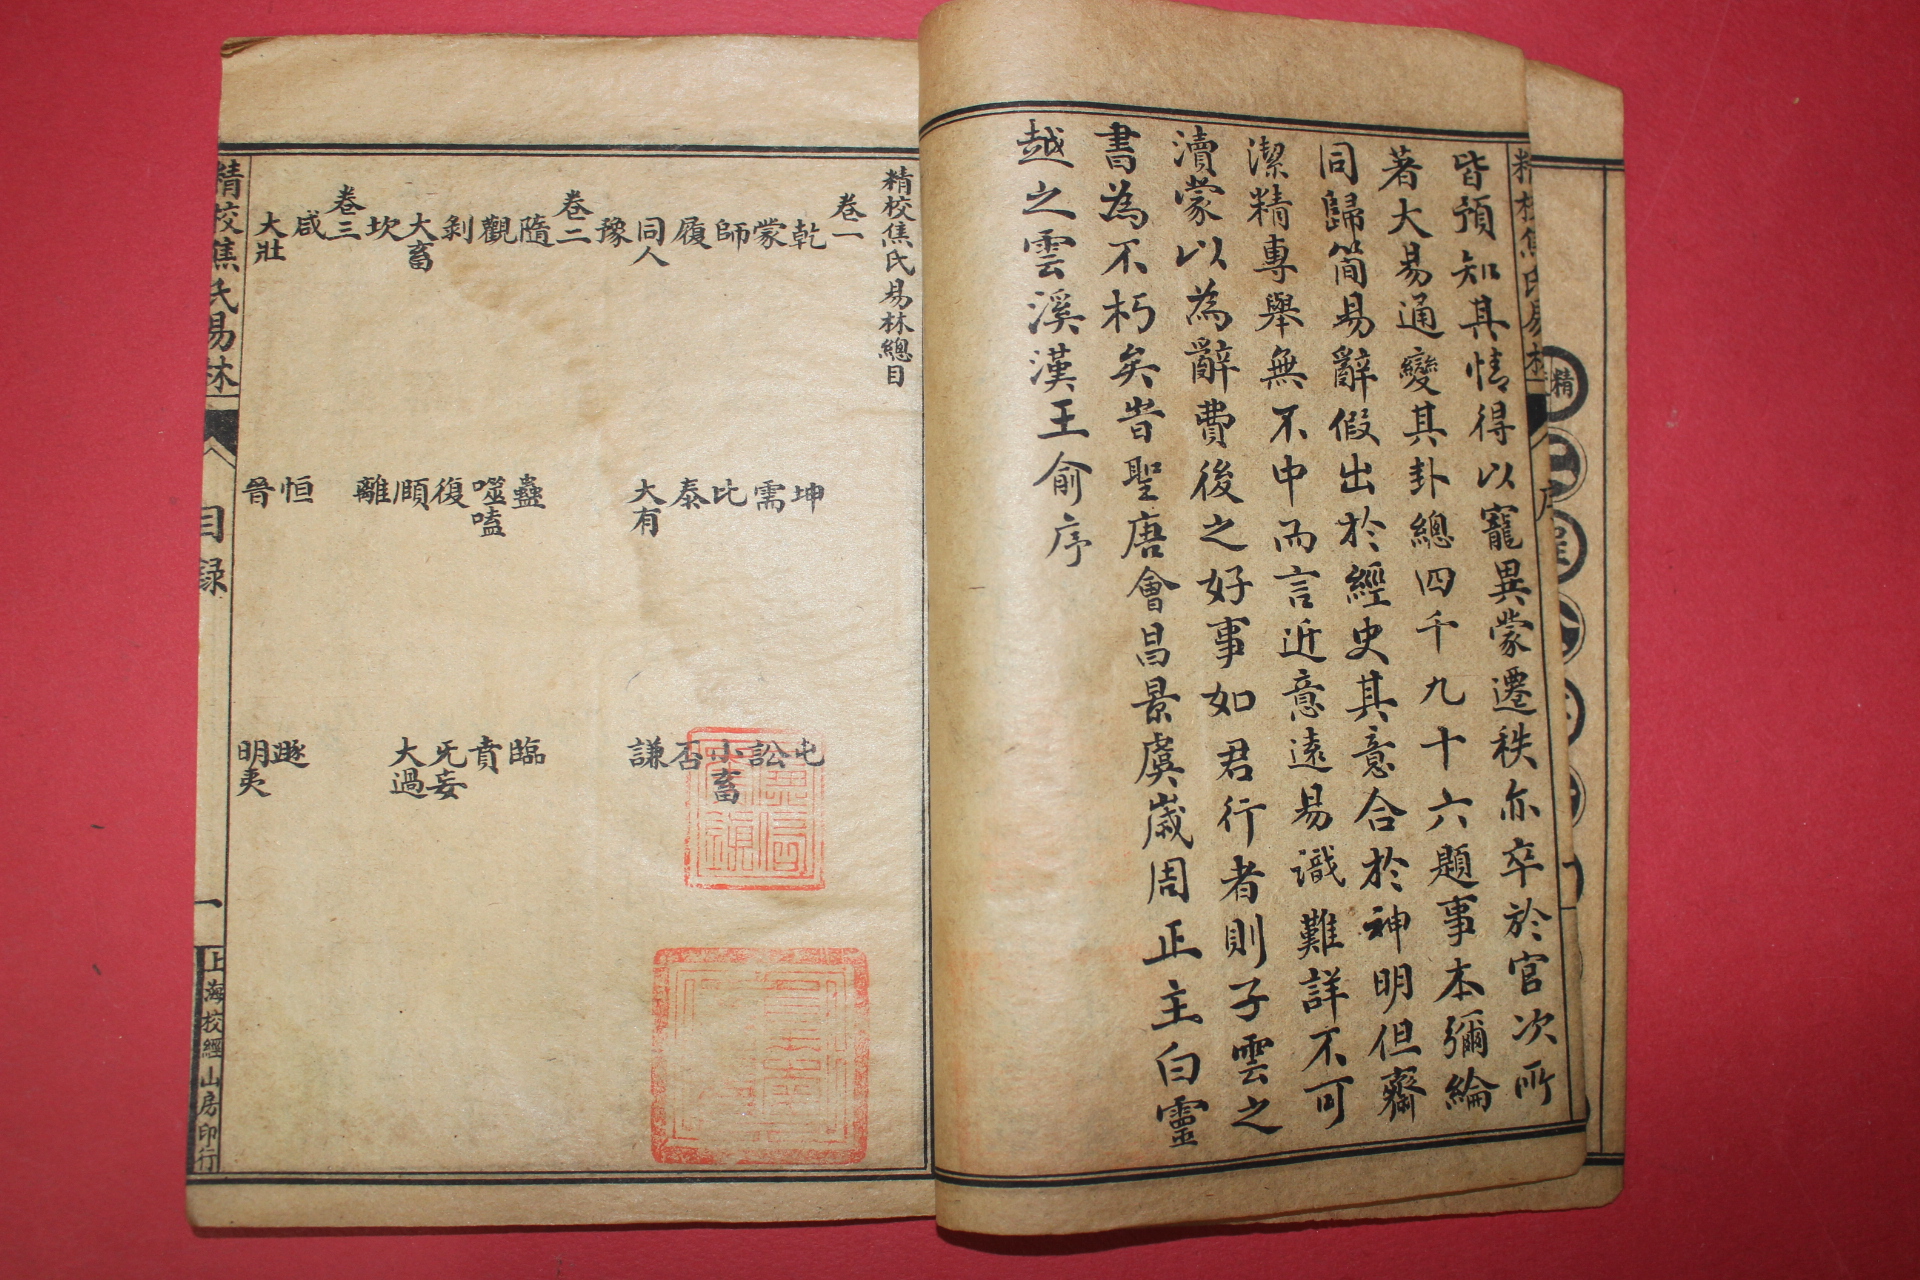 精校焦氏易林 序
皆預知其情得以寵異蒙遷秩亦卒於官次所
著大易通變其卦總四千九十六題事本彌綸
同歸簡易辭假出於經史其意合於神明但齋
潔精專舉無不中而言近意遠易識難詳不可
瀆蒙以為辭費後之好事如君行者則子雲之
書為不朽矣昔聖唐會昌景虞歲周正主白靈
越之雲溪漢王俞序
精校焦氏易林總目
卷一
乾 坤 屯
蒙 需 訟
師 比 小畜
履 泰 否
同人 大有 謙
豫
卷二
隨 蠱 臨
觀 噬嗑 賁
剝 復 无妄
大畜 頤 大過
坎 離
卷三
咸 恒 遯
大壯 晉 明夷
精校焦氏易林 目錄 一 上海校經山房印行